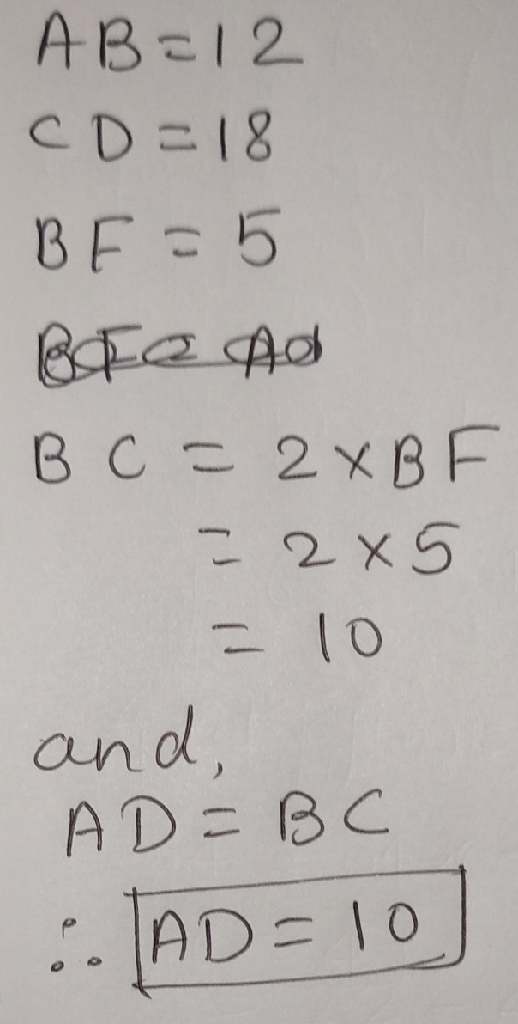 AB = 12
CD = 18
BF = 5
BC = 2 × BF
= 2 × 5
= 10
and,
AD = BC
∴ AD = 10